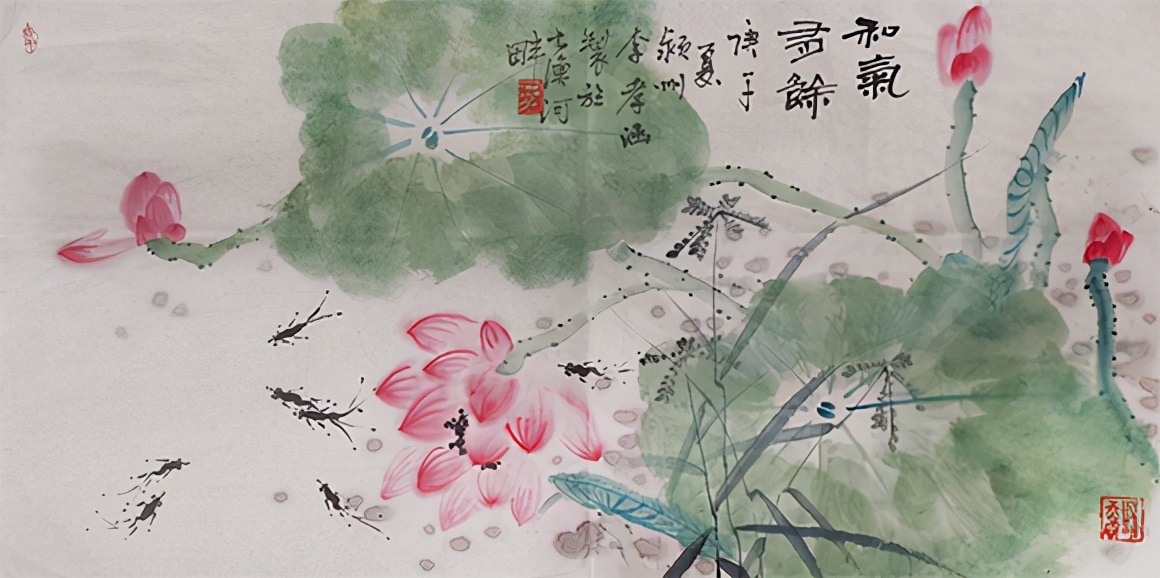 和氣
有餘
庚子
夏
潁州
李孝涵
製於
七漁河
畔